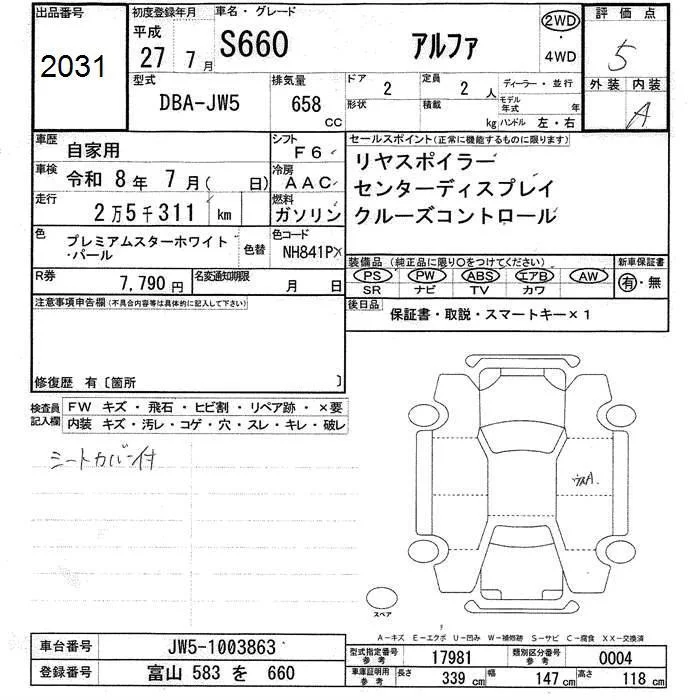 出品番号
2031
初度登録年月
平成
27 7月
車名・グレード
S660 アルファ
2WD
・
4WD
評価点
5
外装 内装
A
型式
DBA-JW5
排気量
658
CC
ドア
2
形状
定員
2 人
積載
kg
ディーラー・並行
モデル
年式 年
ハンドル 左・右
車歴 自家用
シフト F6
車検 令和 8年 7月( 日)
冷房 AAC
走行 2万5千311 km
燃料 ガソリン
色 プレミアムスターホワイト
・パール
色替
色コード
NH841P
R券 7,790円
名変通知期限 月 日
セールスポイント(正常に機能するものに限ります)
リヤスポイラー
センターディスプレイ
クルーズコントロール
装備品(純正品に限り○をつけてください)
PS PW ABS エアB AW
SR ナビ TV カワ
新車保証書
有・無
後日品 保証書・取説・スマートキー×1
注意事項申告欄(不具合内容等は具体的に記入して下さい)
修復歴 有〔箇所 〕
検査員
記入欄
FW キズ・飛石・ヒビ割・リペア跡・×要
内装 キズ・汚レ・コゲ・穴・スレ・キレ・破レ
シートカバー付
スペア
A-キズ E-エクボ U-凹み W-補修跡 S-サビ C-腐食 XX-交換済
車台番号 JW5-1003863
登録番号 富山 583 を 660
型式指定番号
参考
17981
類別区分番号
参考
0004
車庫証明用
参考
長さ 339 cm 幅 147 cm 高さ 118 cm